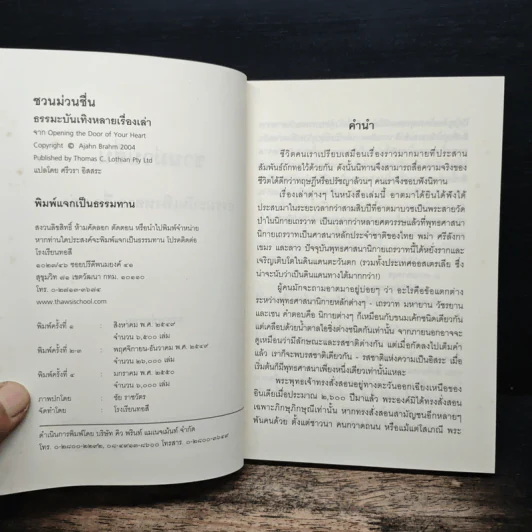 ชวนม่วนชื่น
ธรรมะบันเทิงหลายเรื่องเล่า
จาก Opening the Door of Your Heart
Copyright © Ajahn Brahm 2004
Published by Thomas C. Lothian Pty Ltd
แปลโดย ศรีวรา อิสสระ
พิมพ์แจกเป็นธรรมทาน
สงวนลิขสิทธิ์ ห้ามคัดลอก ตัดตอน หรือนำไปพิมพ์จำหน่าย
หากท่านใดประสงค์จะพิมพ์แจกเป็นธรรมทาน โปรดติดต่อ
โรงเรียนทอสี
๑๐๒๓/๔๖ ซอยปรีดีพนมยงค์ ๔๑
สุขุมวิท ๗๑ เขตวัฒนา กทม. ๑๐๑๑๐
โทร.
www.thawsischool.com
พิมพ์ครั้งที่ ๑ สิงหาคม พ.ศ. ๒๕๔๙
จำนวน ๖,๕๐๐ เล่ม
พิมพ์ครั้งที่ ๒-๓ พฤศจิกายน-ธันวาคม พ.ศ. ๒๕๔๙
จำนวน ๒๖,๐๐๐ เล่ม
พิมพ์ครั้งที่ ๔ มกราคม พ.ศ. ๒๕๕๐
จำนวน ๖,๐๐๐ เล่ม
ภาพปกโดย ชัย ราชวัตร
จัดทำโดย โรงเรียนทอสี
ดำเนินการพิมพ์โดย บริษัท คิว พรินท์ แมเนจเม้นท์ จำกัด
โทร. โทรสาร
คำนำ
ชีวิตคนเราเปรียบเสมือนเรื่องราวมากมายที่ประสาน
สัมพันธ์ถักทอไว้ด้วยกัน ดังนั้นนิทานจึงสามารถสื่อความจริงของ
ชีวิตได้ดีกว่าทฤษฎีหรือปรัชญาล้วนๆ คนเราจึงชอบฟังนิทาน
เรื่องเล่าต่างๆ ในหนังสือเล่มนี้ อาตมาได้ยินได้ฟังได้
ประสบมาในระยะเวลากว่าสามสิบปีที่อาตมาบวชเป็นพระสายวัด
ป่าในนิกายเถรวาท เป็นเวลากว่าหลายศตวรรษแล้วที่พุทธศาสนา
นิกายเถรวาทเป็นศาสนาหลักประจำชาติของไทย พม่า ศรีลังกา
เขมร และลาว ปัจจุบันพุทธศาสนานิกายเถรวาทนี้ได้หยั่งรากและ
เจริญเติบโตในดินแดนตะวันตก (รวมทั้งประเทศออสเตรเลีย ซึ่ง
น่าจะนับว่าเป็นดินแดนทางใต้มากกว่า)
ผู้คนมักจะถามอาตมาอยู่บ่อยๆ ว่า อะไรคือข้อแตกต่าง
ระหว่างพุทธศาสนานิกายหลักต่างๆ - เถรวาท มหายาน วัชรยาน
และเซน คำตอบคือ นิกายต่างๆ ก็เหมือนกับขนมเค้กชนิดเดียวกัน
แต่เคลือบด้วยน้ำตาลไอซิ่งต่างชนิดกันเท่านั้น จากภายนอกอาจจะ
ดูเหมือนว่ามีลักษณะและรสชาติต่างกัน แต่เมื่อกัดลงไปเต็มคำ
แล้ว เราก็จะพบรสชาติเดียวกัน - รสชาติแห่งความเป็นอิสระ เมื่อ
เริ่มต้นก็มีพุทธศาสนาเพียงหนึ่งเดียวเท่านั้นแหละ
พระพุทธเจ้าทรงสั่งสอนอยู่ทางตะวันออกเฉียงเหนือของ
อินเดียเมื่อประมาณ ๒,๖๐๐ ปีมาแล้ว พระองค์มิได้ทรงสั่งสอน
เฉพาะภิกษุภิกษุณีเท่านั้น หากทรงสั่งสอนสามัญชนอีกหลายๆ
พันคนด้วย ตั้งแต่ชาวนา คนกวาดถนน หรือแม้แต่โสเภณี พระ